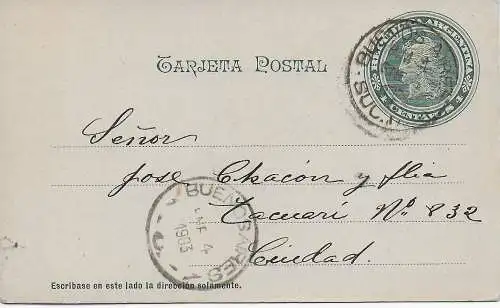 TARJETA POSTAL
REPUBLICA ARGENTINA
1 CENTAVO 1
BUENOS AIRES
SUC.
Señor
José Chacón y flia
Tacuarí Nº 832
Ciudad.
BUENOS AIRES
ENE 4
1903
Escríbase en este lado la dirección solamente.